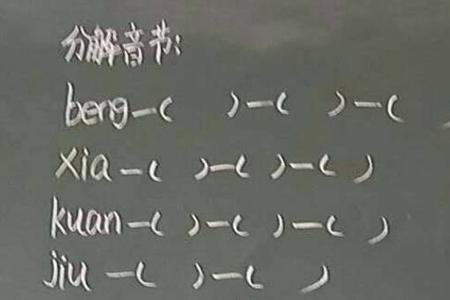 分解音节:
beng—(   )—(   )—(
xia—(   )—(   )—(   )
kuan—(   )—(   )—(   )
jiu—(   )—(   )